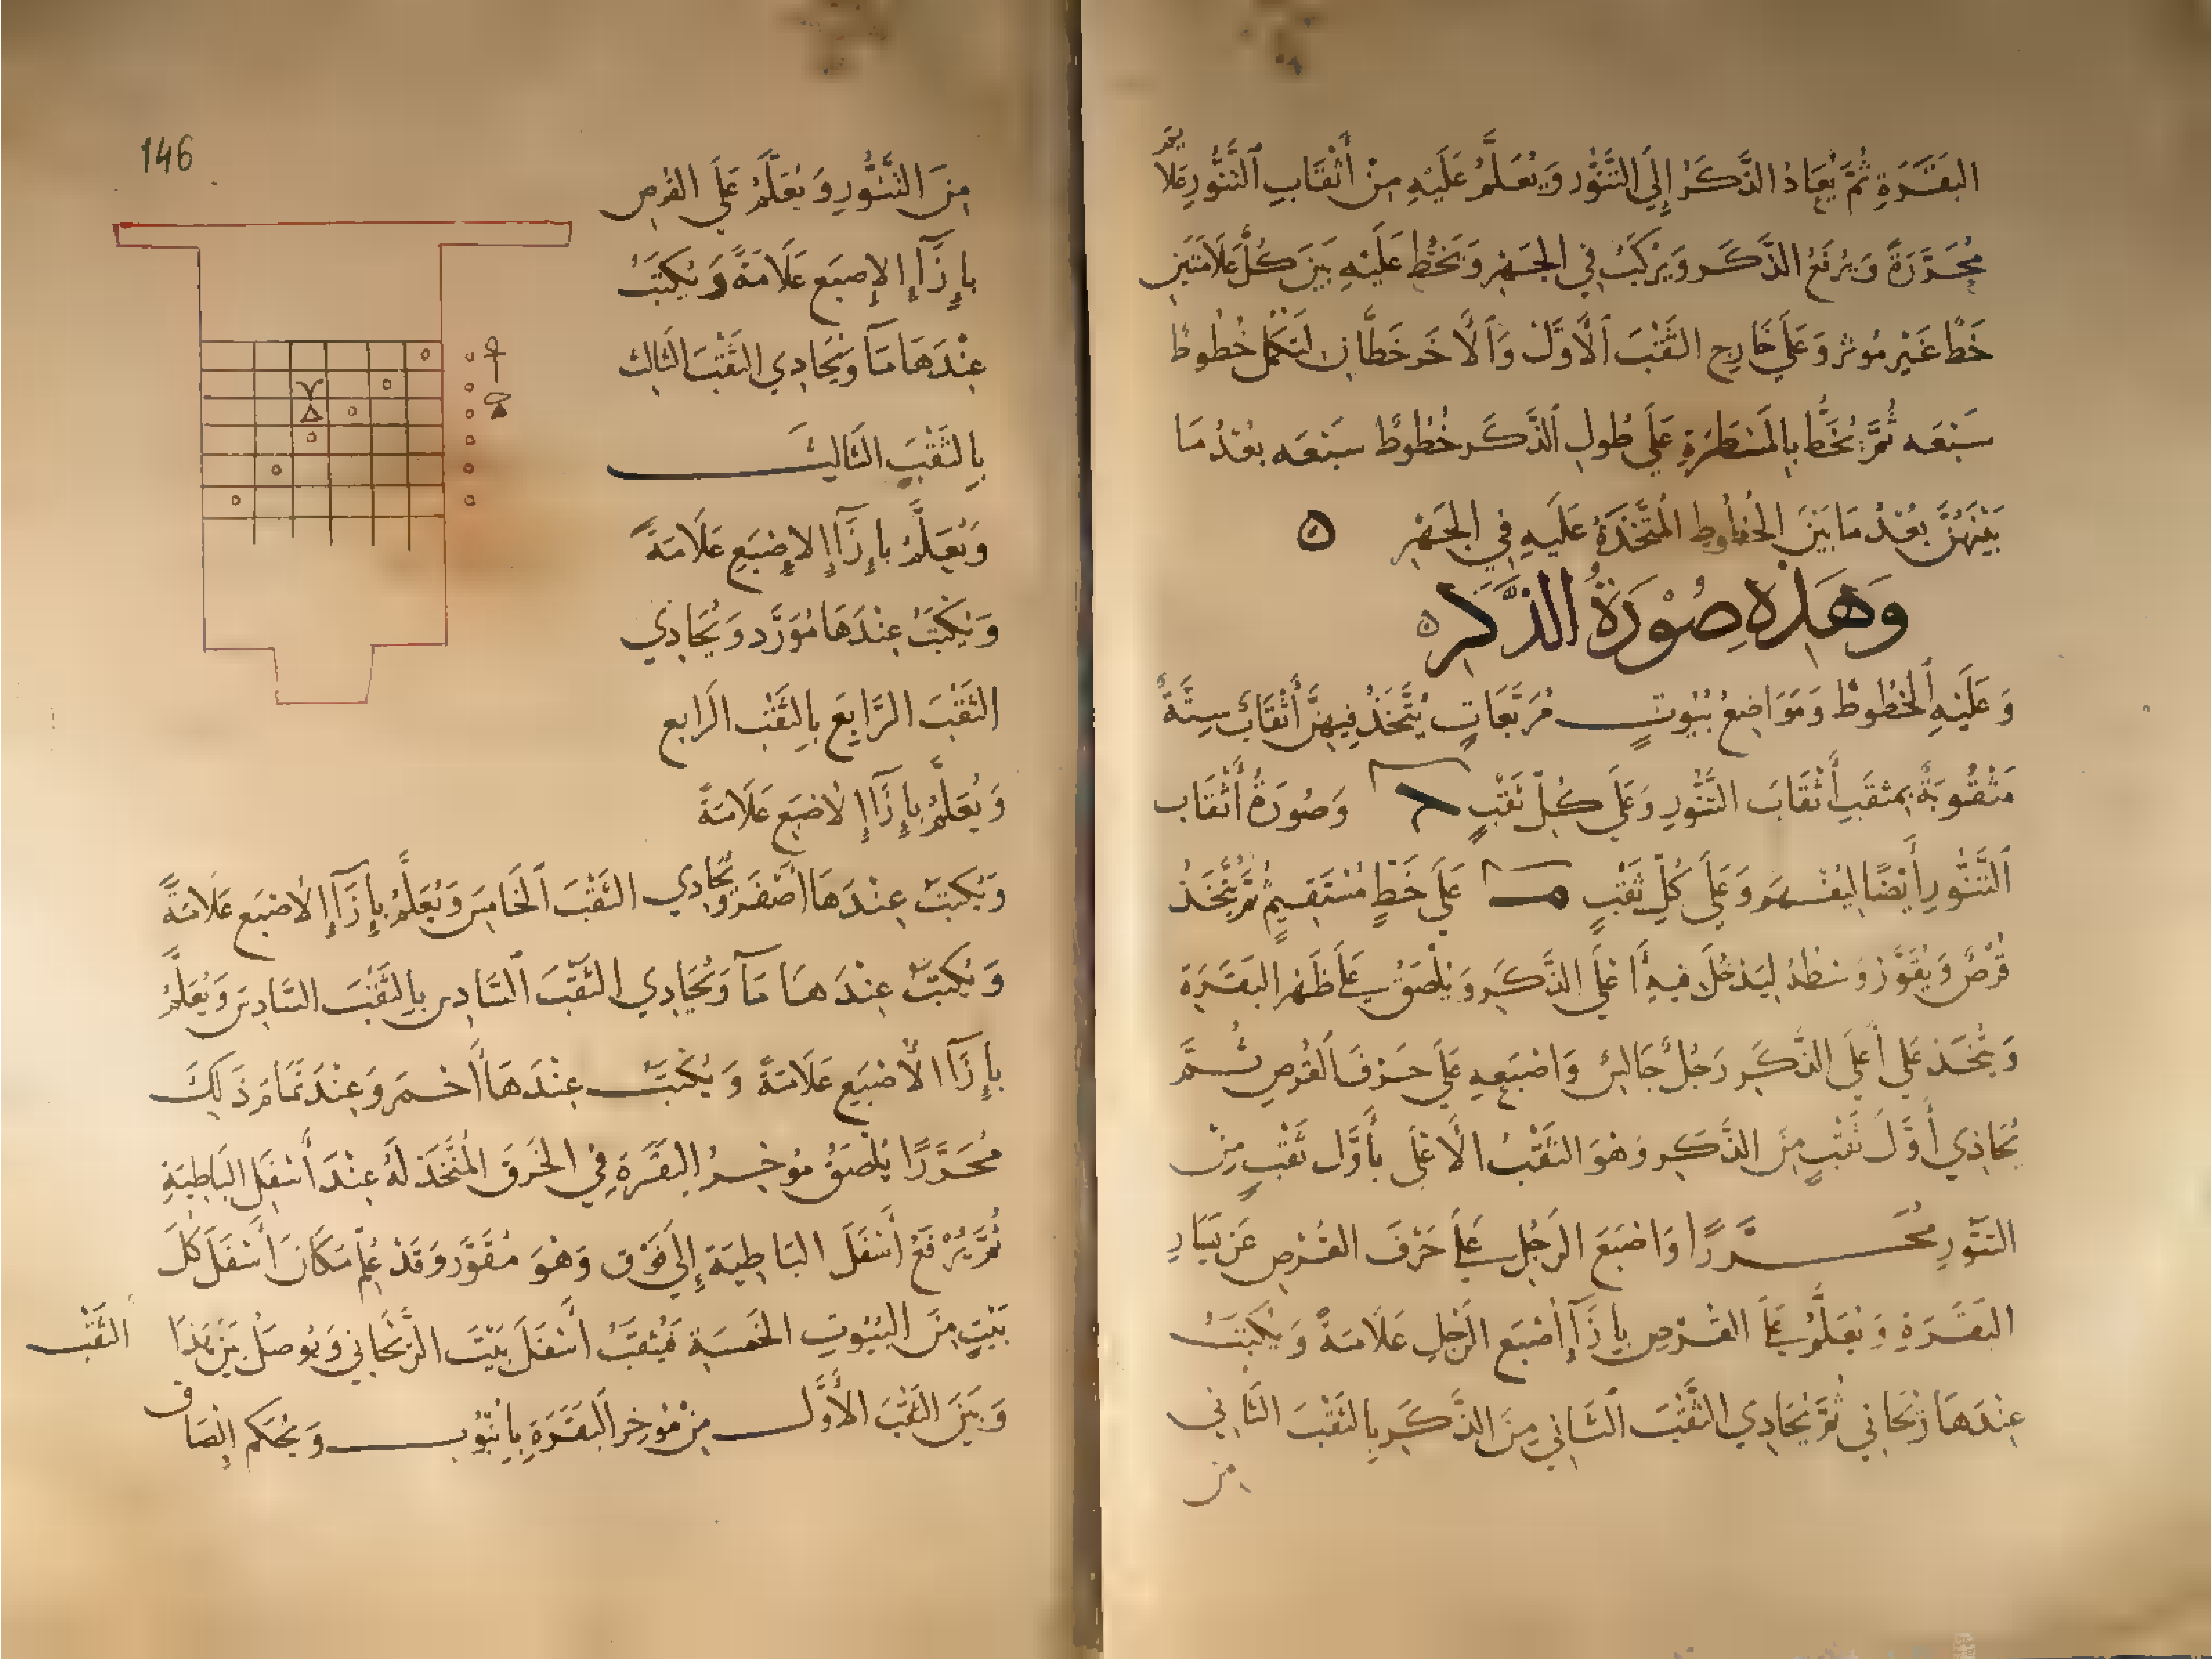 البَقَرَةِ ثُمَّ يُعَادُ الذَّكَرُ إِلَى التَّنُّورِ وَيُعَلَّمُ عَلَيْهِ مِنْ أَثْقَابِ التَّنُّورِ
مُحَرَّرَةً وَيُرْفَعُ الذَّكَر وَيُرَكَّبُ فِي الجَهْرِ وَيُخَطُّ عَلَيْهِ بَيْنَ كُلِّ عَلَامَتَيْنِ
خَطًّا غَيْرِ مُوثر وَعَلَى خَارِج الثَّقْبَ الأَوَّل وَالآخَر خَطَّانِ لتكمل خُطُوطًا
سَبْعَه ثُمَّ يُخَطُّ بِالمَسْطَرَةِ عَلَى طُولِ الذَّكَر خُطُوطٌ سَبْعَه بُعْدُ مَا
بَيْنَهُنَّ بُعْدُ مَا بَيْنَ الخُطُوطِ المُتَّخَذَةُ عَلَيهِ فِي الجَهْرِ ه
وَهَذِهِ صُوْرَةُ الذَّكَرِ ه
وَعَلَيْهِ الخُطُوطُ وَمَوَاضِعُ بُيُوتٍ مُرَبَّعَاتٍ يُتَّخَذُ فِيهِنَّ أَثْقَابٌ سِتَّةٌ
مَثْقُوبَةٌ بِمثقَبِ أَثْقَابَ التَّنُّورِ وَعَلَى كُلِّ ثَقْبٍ وَصُورَةُ أَثْقَاب
التَّنُّورِ أَيْضًا ليُفْهَم وَعَلَى كُلِّ ثَقْبٍ عَلَى خَطٍّ مُسْتَقِيمٍ ثُمَّ يُتَّخَذُ
قُرْصٌ وَيُقَوَّرُ وَسَطُهُ لِيَدْخُلَ فِيهِ أَعْلَى الذَّكَرِ وَيُلْصَقُ عَلَى ظَهْرِ البَقَرَةِ
وَيُتَّخَذ عَلى أَعْلَى الذَّكَرِ رَجُلٌ جَالِسٌ وَاصْبَعِهِ عَلَى حَرْفَ القُرصِ ثُمَّ
يُحَاذِي أَوَّلَ ثَقْبٍ مِنَ الذَّكِرِ وَهْوَ الثَّقْبُ الأَعْلَى بِأَوَّلِ ثَقْبٍ مِنْ
التَنُّورِ مُحَرَّرًا وَاصْبَعَ الرَجُلِ عَلَى حَرْفَ القُرْصِ عَن يَسَارِ
البَقَرَةِ وَيُعَلَّمُ عَلَى القُرْصِ بِإِزَآءِ اصْبَعِ الرَّجُلِ عَلَامَةً وَيُكْتَبُ
عِنْدَهَا رَيْحَانِي ثُمَّ يُحَاذِي الثَّقْبَ الثَّانِي مِنَ الذَّكَرِ بِالثَقْبَ الثَّانِي
مِن
146
مِنَ التَّنُّورِ وَيُعَلَّمُ عَلَى القُرصِ
بِإِزَآءِ الإِصبَعِ عَلَامَةً وَيُكْتَبُ
عِنْدَهَا مَآ وَيُحَاذِي الثَّقْبَ الثَّالِث
بِالثَّقْبِ الثَّالِثَ
وَيُعَلَّمُ بِإِزَآءِ الإِصْبَعِ عَلَامَةً
وَيُكْتَبُ عِنْدَهَا مُوَرَّد وَيُحَاذِي
الثَقْبَ الرَّابِعَ بِالثَّقْبِ الرَابِع
وَيُعَلَّمُ بِإِزَآءِ الاصْبَعِ عَلَامَةً
وَيُكْتَبُ عِنْدَهَا أصْفَر وَيُحَاذِي الثَقْبَ الخَامِسَ وَيُعَلَّمُ بِإِزَآءِ الاصْبَعِ عَلَامَةً
وَيُكْتَبُ عِنْدَهَا مَآ وَيُحَاذِي الثَّقْبَ السَّادِس بِالثَّقْبَ السَّادِسَ وَيُعَلَّمُ
بِإِزَآءِ الأصْبَعِ عَلَامَةً وَيُكْتَبُ عِنْدَهَا أَحْمَر وَعِنْدَ تَمَامِ ذَلِكَ
مُحَرَّرًا يُلْصَقُ مُؤخِرُ البَقَرَةِ فِي الخَرقَ المُتَّخَذ لَهُ عِنْدَ أَسْفَلِ البَاطِيَةِ
ثُمَّ يُرْفَعُ أَسْفَلَ البَاطِيَة إِلَى فَوْق وَهْوَ مُقَوَّر وَقَدْ عُلِمَ مَكَانَ أَسْفَلَ كُلَ
بَيْتٍ مِنَ البُيُوتِ الخَمسَة فَيُثقَبُ أَسْفَلَ بَيْتَ الرَّيْحَانِي وَيُوصَلُ بَيْنَ هَذَا الثَّقْب
وَبَيْنَ الثَقْبَ الأَوَّل مِنْ مُؤخِر البَقَرَةِ بِأنبُوبٍ وَيُحكَم إِلصَاق